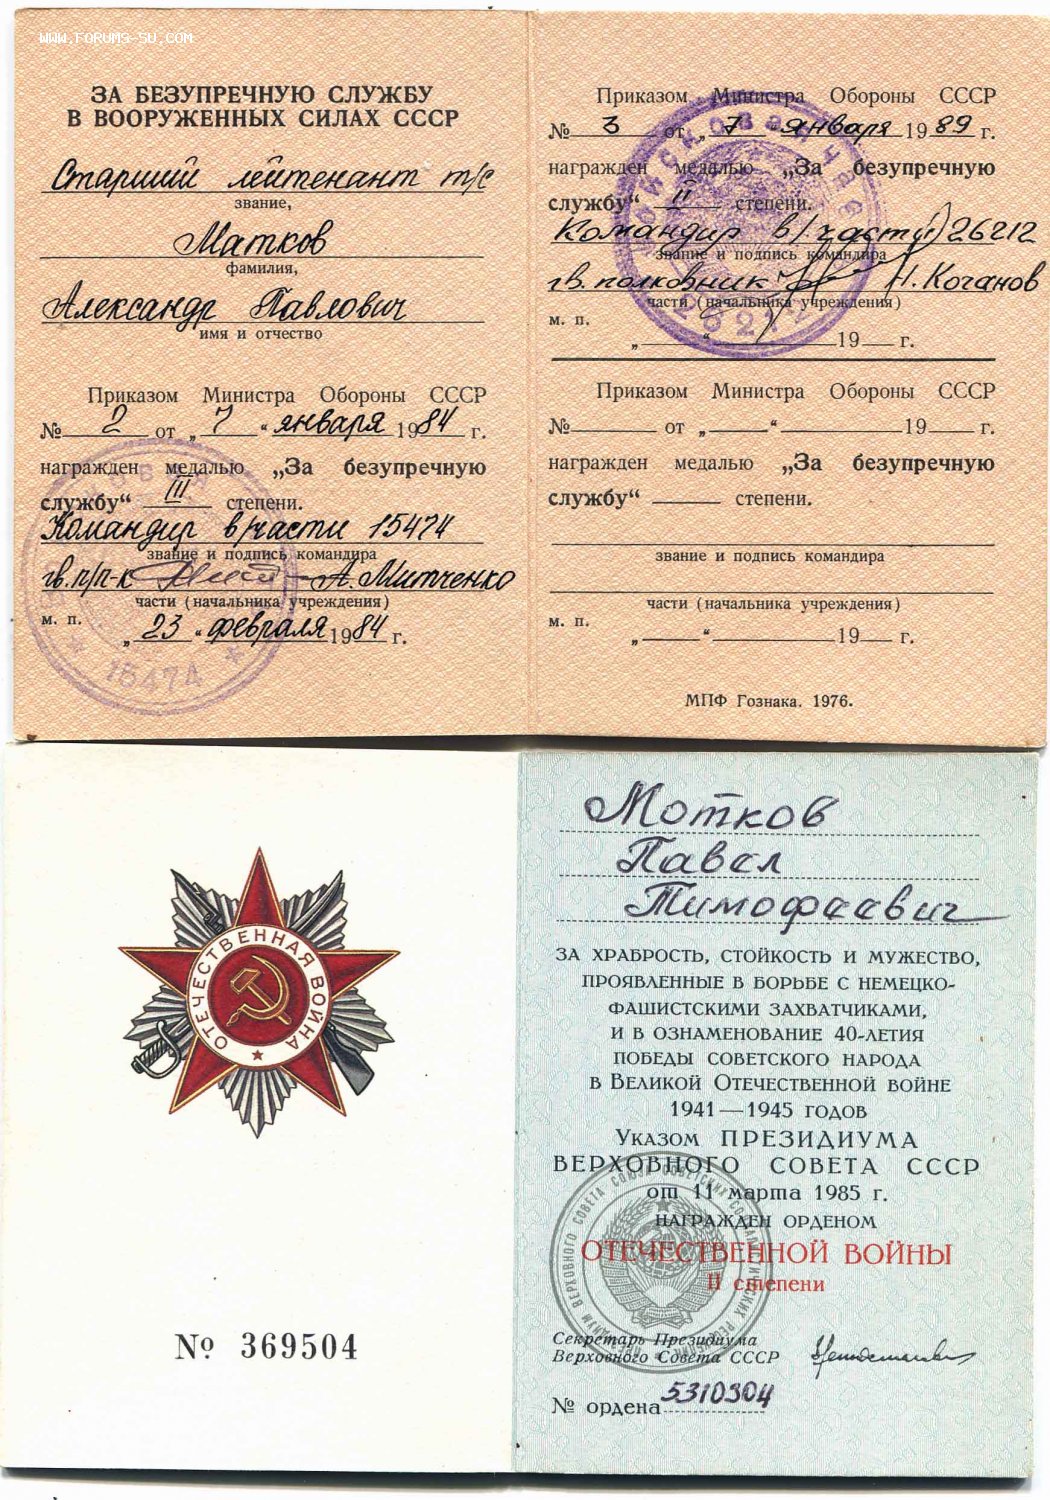 www.forum9-su.com
ЗА БЕЗУПРЕЧНУЮ СЛУЖБУ
В ВООРУЖЕННЫХ СИЛАХ СССР
Старший лейтенант т/с
звание,
Матков
фамилия,
Александр Павлович
имя и отчество
Приказом Министра Обороны СССР
№ 2 от „ 7 “ января 1984 г.
награжден медалью „За безупречную
службу“ III степени.
Командир в/части 15474
звание и подпись командира
гв. п/п-к А. Митченко
части (начальника учреждения)
м. п.
„ 23 “ февраля 1984 г.
15474
Приказом Министра Обороны СССР
№ 3 от „ 7 “ января 1989 г.
награжден медалью „За безупречную
службу“ II степени.
Командир в/части 26212
звание и подпись командира
гв. полковник Н. Коганов
части (начальника учреждения)
м. п.
„ “ 19 г.
Войсковая часть
26212
Приказом Министра Обороны СССР
№ от „ “ 19 г.
награжден медалью „За безупречную
службу“ степени.
звание и подпись командира
части (начальника учреждения)
м. п.
„ “ 19 г.
МПФ Гознака. 1976.
ОТЕЧЕСТВЕННАЯ ВОЙНА
№ 369504
Мотков
Павел
Тимофеевич
ЗА ХРАБРОСТЬ, СТОЙКОСТЬ И МУЖЕСТВО,
ПРОЯВЛЕННЫЕ В БОРЬБЕ С НЕМЕЦКО-
ФАШИСТСКИМИ ЗАХВАТЧИКАМИ,
И В ОЗНАМЕНОВАНИЕ 40-ЛЕТИЯ
ПОБЕДЫ СОВЕТСКОГО НАРОДА
В ВЕЛИКОЙ ОТЕЧЕСТВЕННОЙ ВОЙНЕ
1941—1945 ГОДОВ
УКАЗОМ ПРЕЗИДИУМА
ВЕРХОВНОГО СОВЕТА СССР
от 11 марта 1985 г.
НАГРАЖДЕН ОРДЕНОМ
ОТЕЧЕСТВЕННОЙ ВОЙНЫ
II степени
Секретарь Президиума
Верховного Совета СССР
№ ордена 5310304